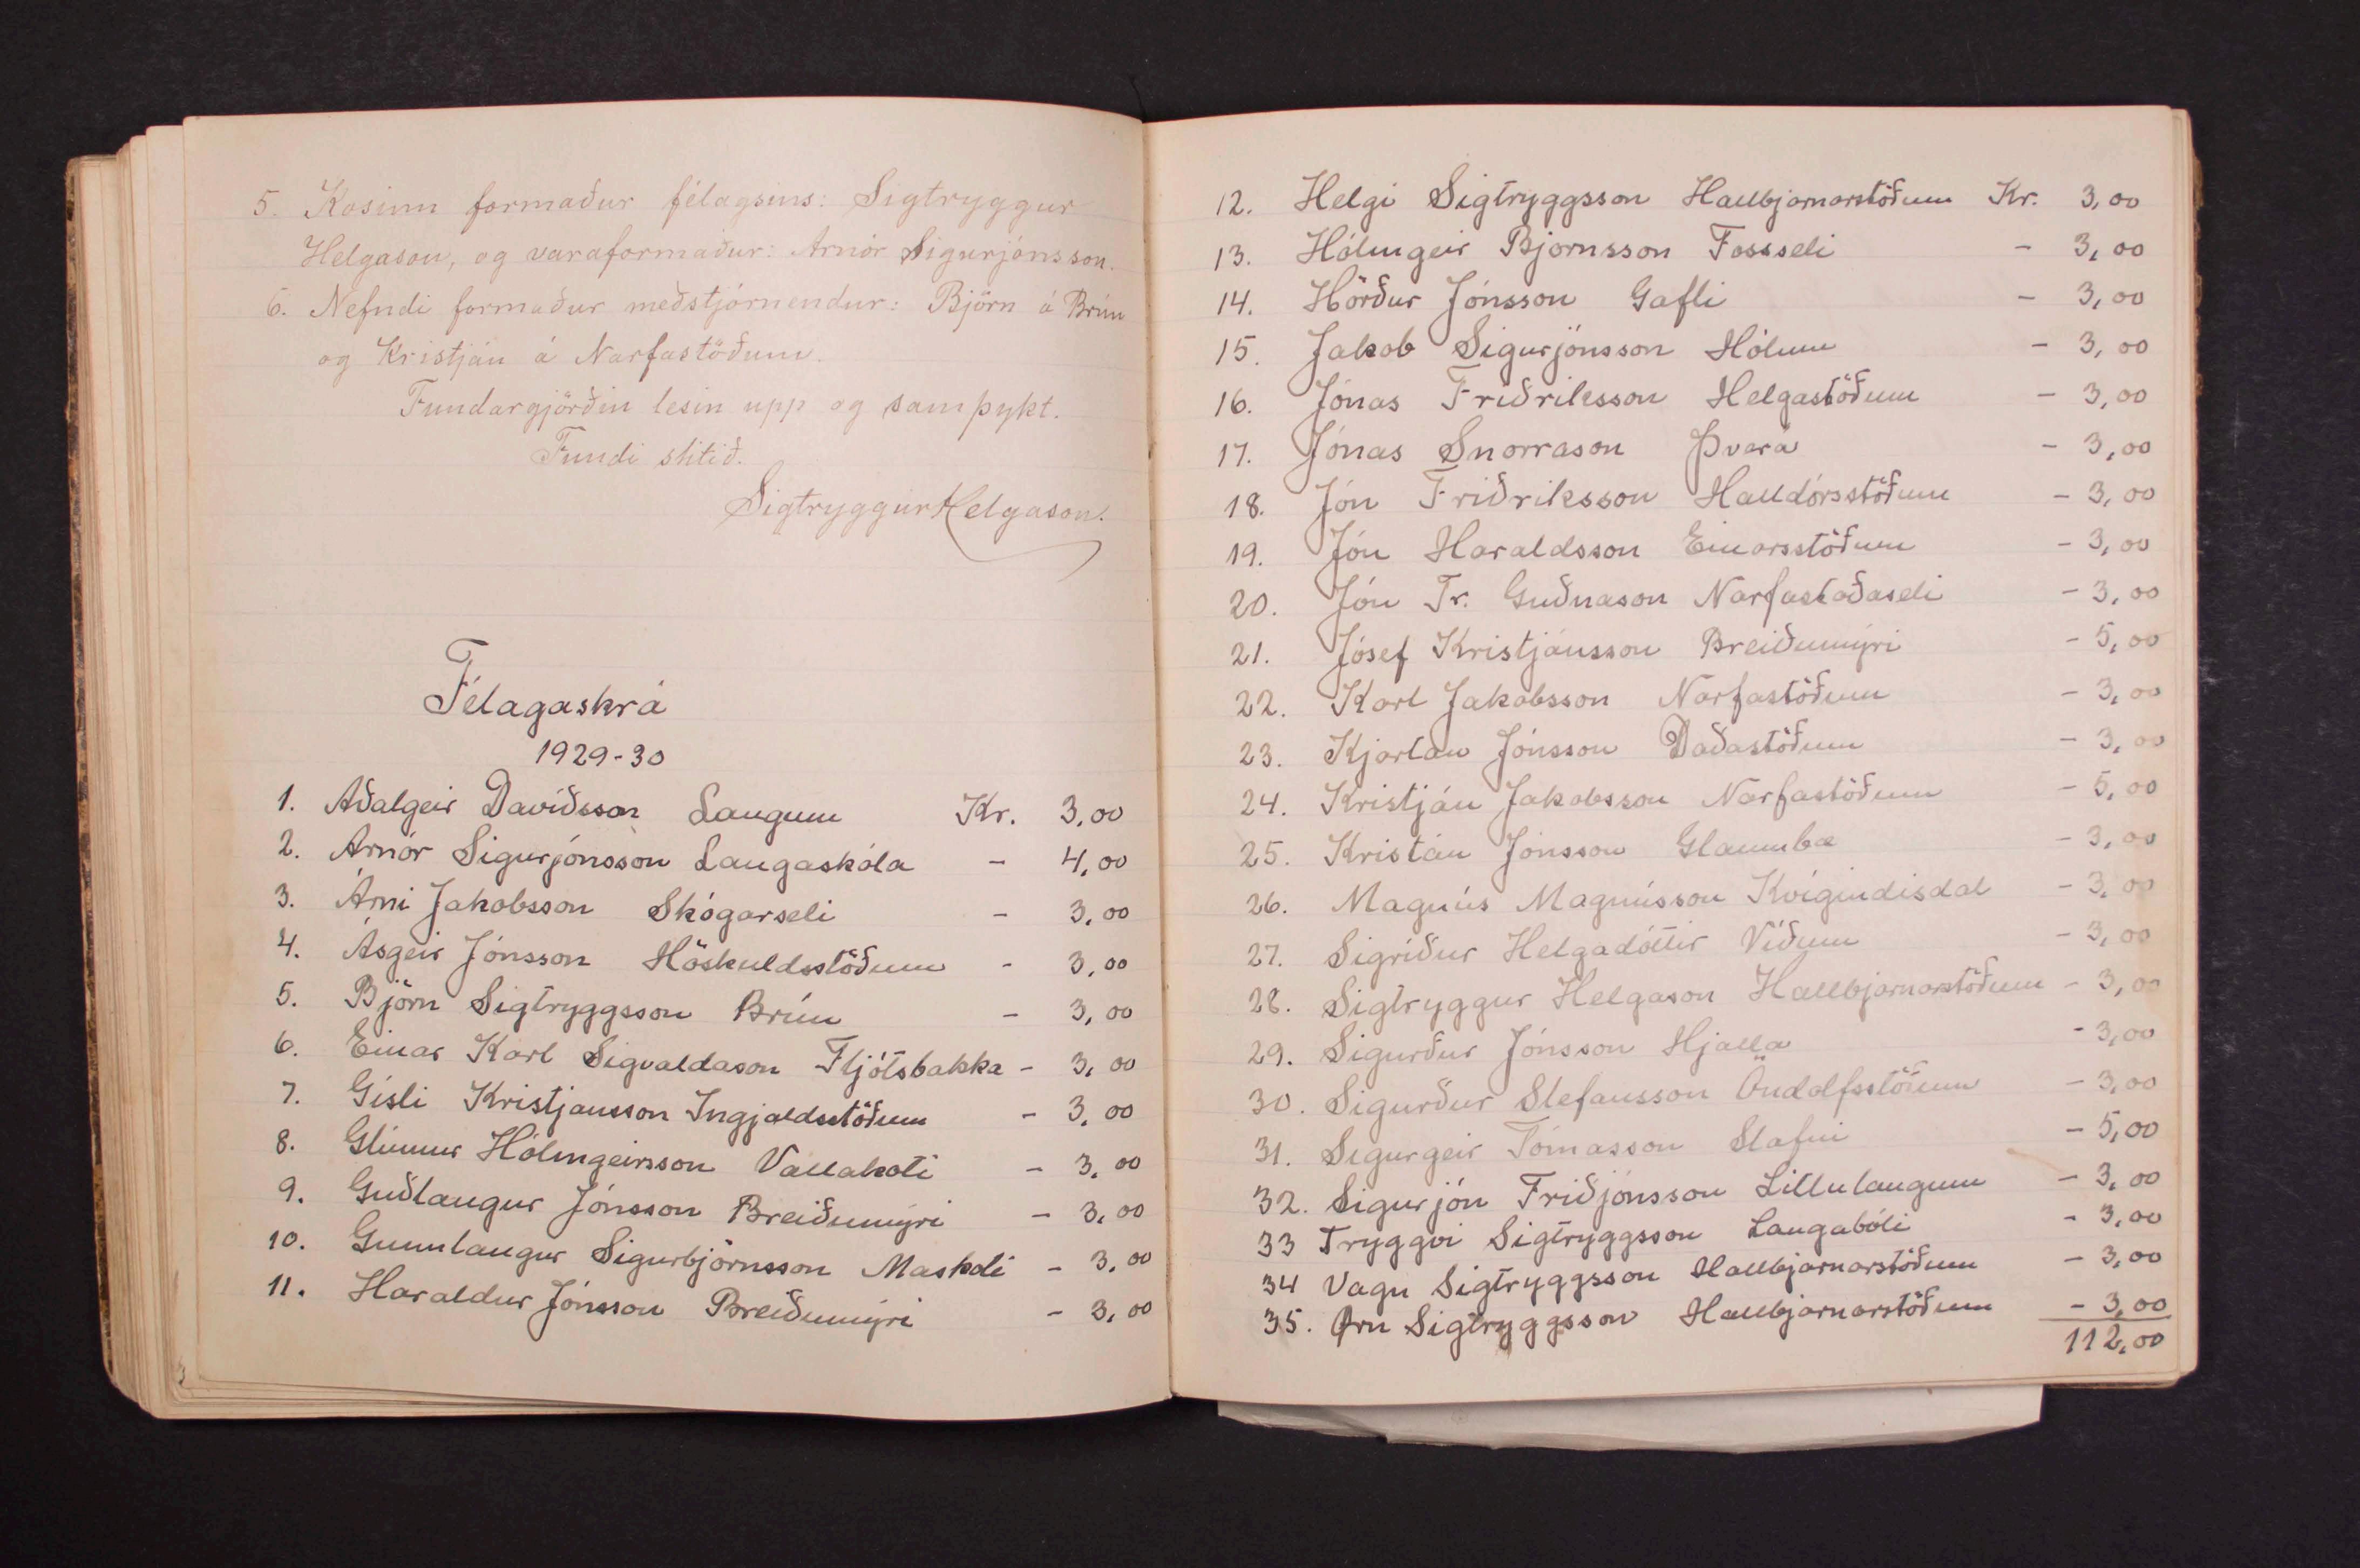 5. Kosinn formaður félagsins: Sigtryggur
Helgason, og varaformaður: Arnór Sigurjónsson.
6. Nefndi formaður meðstjórnendur: Björn á Brún
og Kristján á Narfastöðum.
Fundargjörðin lesin upp og samþykt.
Fundi slitið.
Sigtryggur Helgason.
Félagaskrá
1929-30
1. Aðalgeir Davíðsson Laugum Kr. 3,00
2. Arnór Sigurjónsson Laugaskóla - 4,00
3. Árni Jakobsson Skógarseli - 3,00
4. Ásgeir Jónsson Höskuldsstöðum - 3,00
5. Björn Sigtryggsson Brún - 3,00
6. Einar Karl Sigvaldason Fljótsbakka - 3,00
7. Gísli Kristjansson Ingjaldsstöðum - 3,00
8. Glúmur Hólmgeirsson Vallakoti - 3,00
9. Guðlaugur Jónsson Breiðumýri - 3,00
10. Gunnlaugur Sigurbjörnsson - 3,00
11. Haraldur Jónsson Breiðumýri - 3,00
12. Helgi Sigtryggsson Hallbjarnarstöðum Kr. 3,00
13. Hólmgeir Björnsson Fossseli - 3,00
14. Hörður Jónsson Gafli - 3,00
15. Jakob Sigurjónsson Hólum - 3,00
16. Jónas Friðriksson Helgastöðum - 3,00
17. Jónas Snorrason Þverá - 3,00
18. Jón Friðriksson Halldórsstöðum - 3,00
19. Jón Haraldsson Einarsstöðum - 3,00
20. Jón Tr. Guðnason Narfastaðaseli - 3,00
21. Jósef Kristjánsson Breiðumýri - 5,00
22. Karl Jakobsson Narfastöðum - 3,00
23. Kjartan Jónsson Daðastöðum - 3,00
24. Kristján Jakobsson Narfastöðum - 5,00
25. Kristán Jónsson Glaumbæ - 3,00
26. Magnús Magnússon Kvígindisdal - 3,00
27. Sigríður Helgadóttir Víðum - 3,00
28. Sigtryggur Helgason Hallbjarnarstöðum - 3,00
29. Sigurður Jónsson Hjalla - 3,00
30. Sigurður Stefansson Öndólfsstöðum - 3,00
31. Sigurgeir Tómasson Stafni - 5,00
32. Sigurjón Friðjónsson Litlulaugum - 3,00
33 Tryggvi Sigtryggsson Laugabóli - 3,00
34 Vagn Sigtryggsson Hallbjarnarstöðum - 3,00
35. Örn Sigtryggsson Hallbjarnarstöðum - 3,00
112,00